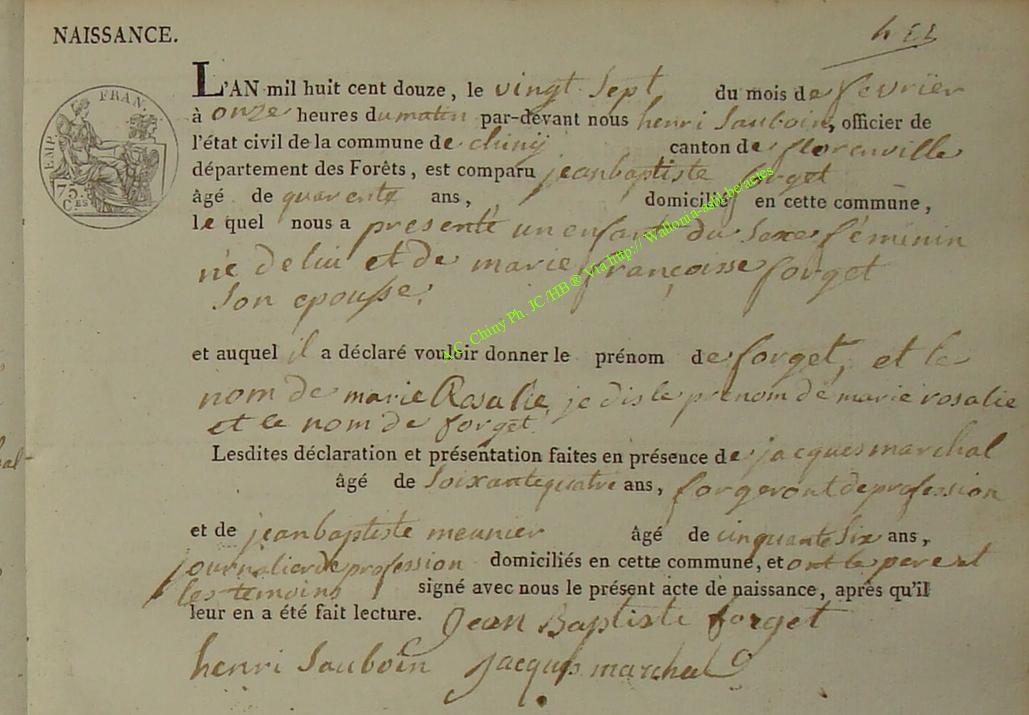 NAISSANCE.
EMP. FRAN.
75. C.ES
L'AN mil huit cent douze, le vingt Sept du mois de fevrier
à onze heures du matin par-devant nous henri Sauboin, officier de
l'état civil de la commune de chiny canton de florenville
département des Forêts, est comparu jeanbaptiste forget
âgé de quarente ans, domicilié en cette commune,
le quel nous a presenté un enfant du Sexe féminin
né de lui et de marie françoisse forget
Son epousse,
et auquel il a déclaré vouloir donner le prénom de forget, et le
nom de marie Rosalie, je dis le prenom de marie rosalie
et le nom de forget.
Lesdites déclaration et présentation faites en présence de jacques marchal
âgé de Soixante quatre ans, forgeront de profession
et de jean baptiste meunier âgé de cinquante Six ans,
journalier de profession domiciliés en cette commune, et ont le pere et
les temoins signé avec nous le présent acte de naissance, après qu'il
leur en a été fait lecture. Jean Baptiste forget
henri Sauboin jacques marchal
E.C. Chiny Ph. JC/HB ® Via http://Wallonia-asbl.be/actes